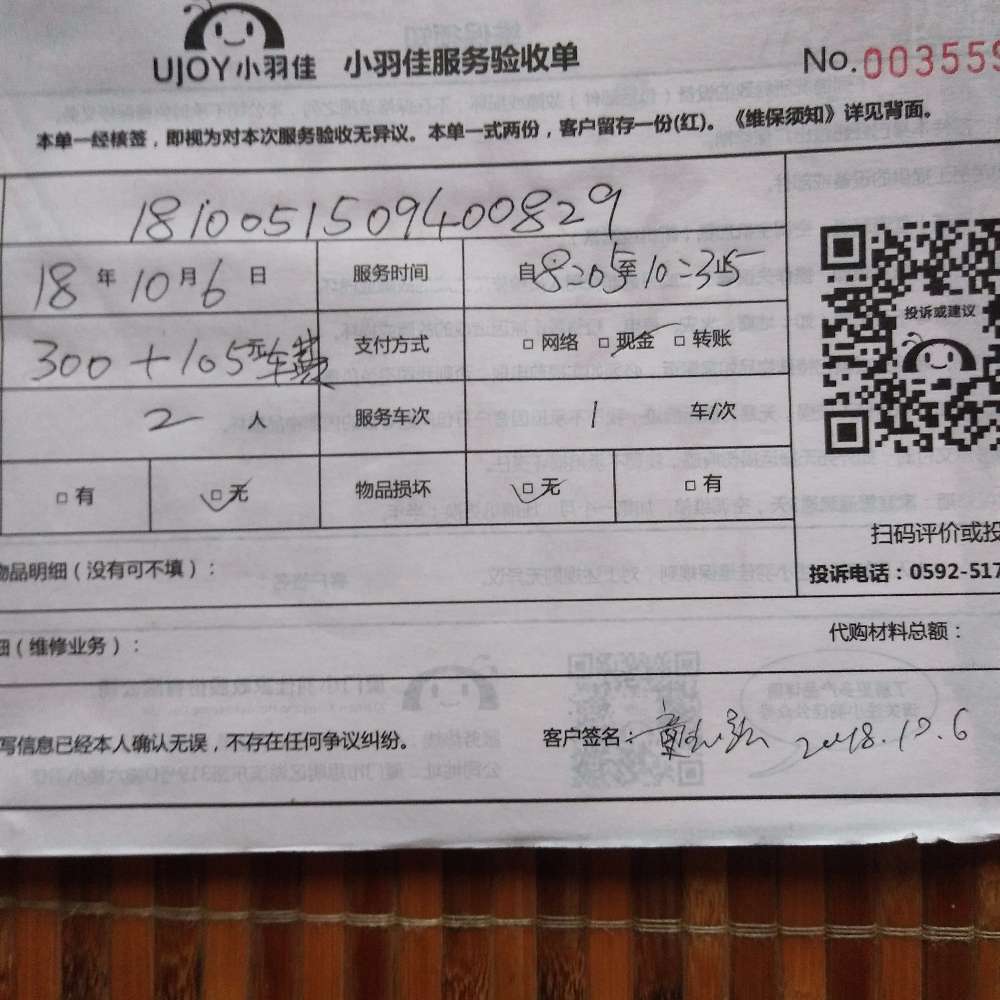 UJOY小羽佳 小羽佳服务验收单 No.003559
本单一经核签，即视为对本次服务验收无异议。本单一式两份，客户留存一份(红)。《维保须知》详见背面。
1810051509400829
18年10月6日 服务时间 自8:05至10:35
300+105元车费 支付方式 □网络 □现金 □转账
2人 服务车次 1 车/次
□有 □无 物品损坏 □无 □有
投诉或建议
扫码评价或投
投诉电话：0592-517
物品明细（没有可不填）：
细（维修业务）： 代购材料总额：
写信息已经本人确认无误，不存在任何争议纠纷。 客户签名： 2018.10.6